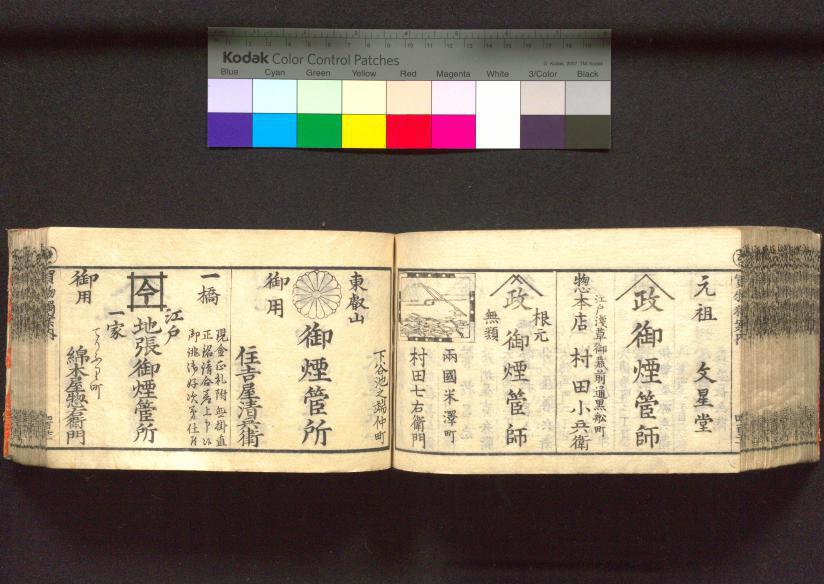 Kodak Color Control Patches
© Kodak, 2007 TM: Kodak
Blue Cyan Green Yellow Red Magenta White 3/Color Black
元祖 文星堂
政 御煙管師
江戸浅草御蔵前通黒舩町
惣本店 村田小兵衛
根元
政 御煙管師
無類
兩國米澤町
村田七右衛門
下谷池之端仲町
東叡山
御煙管所
御用
住吉屋清兵衛
一橋
現金正札附無掛直
江戸
今 地張御煙管所
一家
御用
綿本屋惣右衛門